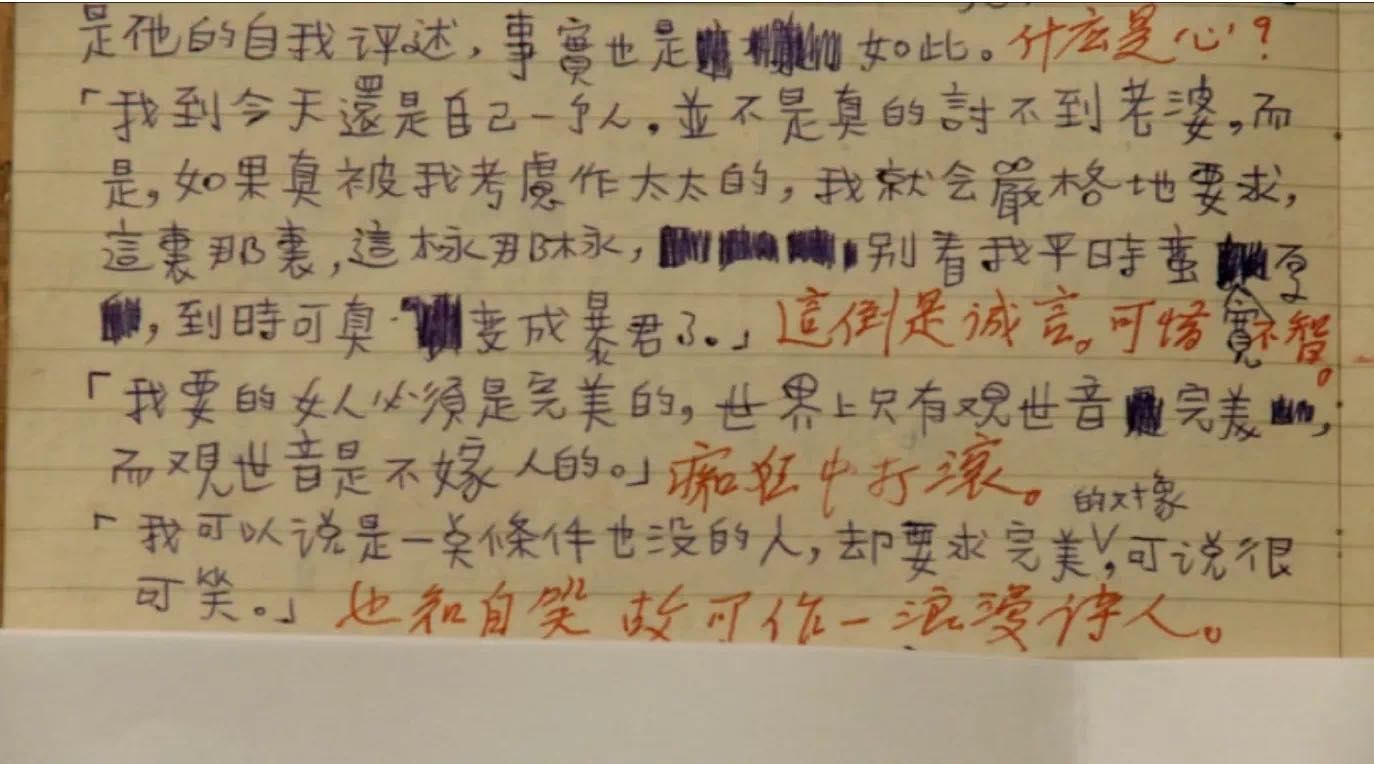 是他的自我评述，事實也是如此。什么是'心'？
「我到今天還是自己一个人，並不是真的討不到老婆，而
是，如果真被我考慮作太太的，我就会嚴格地要求，
這裏那裏，這樣那樣，别看我平時蛮
，到時可真变成暴君了。」這倒是诚言。可惜不智。
「我要的女人必須是完美的，世界上只有观世音完美，
而观世音是不嫁人的。」痴狂中打滚。
的对象
「我可以说是一点條件也没的人，却要求完美，可说很
可笑。」也知自笑 故可作一浪漫诗人。